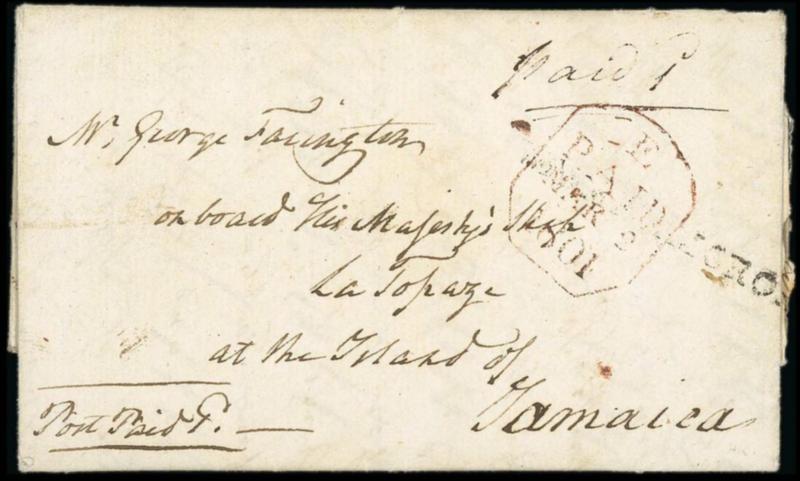 Paid 1
Mr. George Farington
on board His Majesty's Ship
La Topaze
at the Island of
Jamaica
Post Paid P.
E
PAID
MR
801